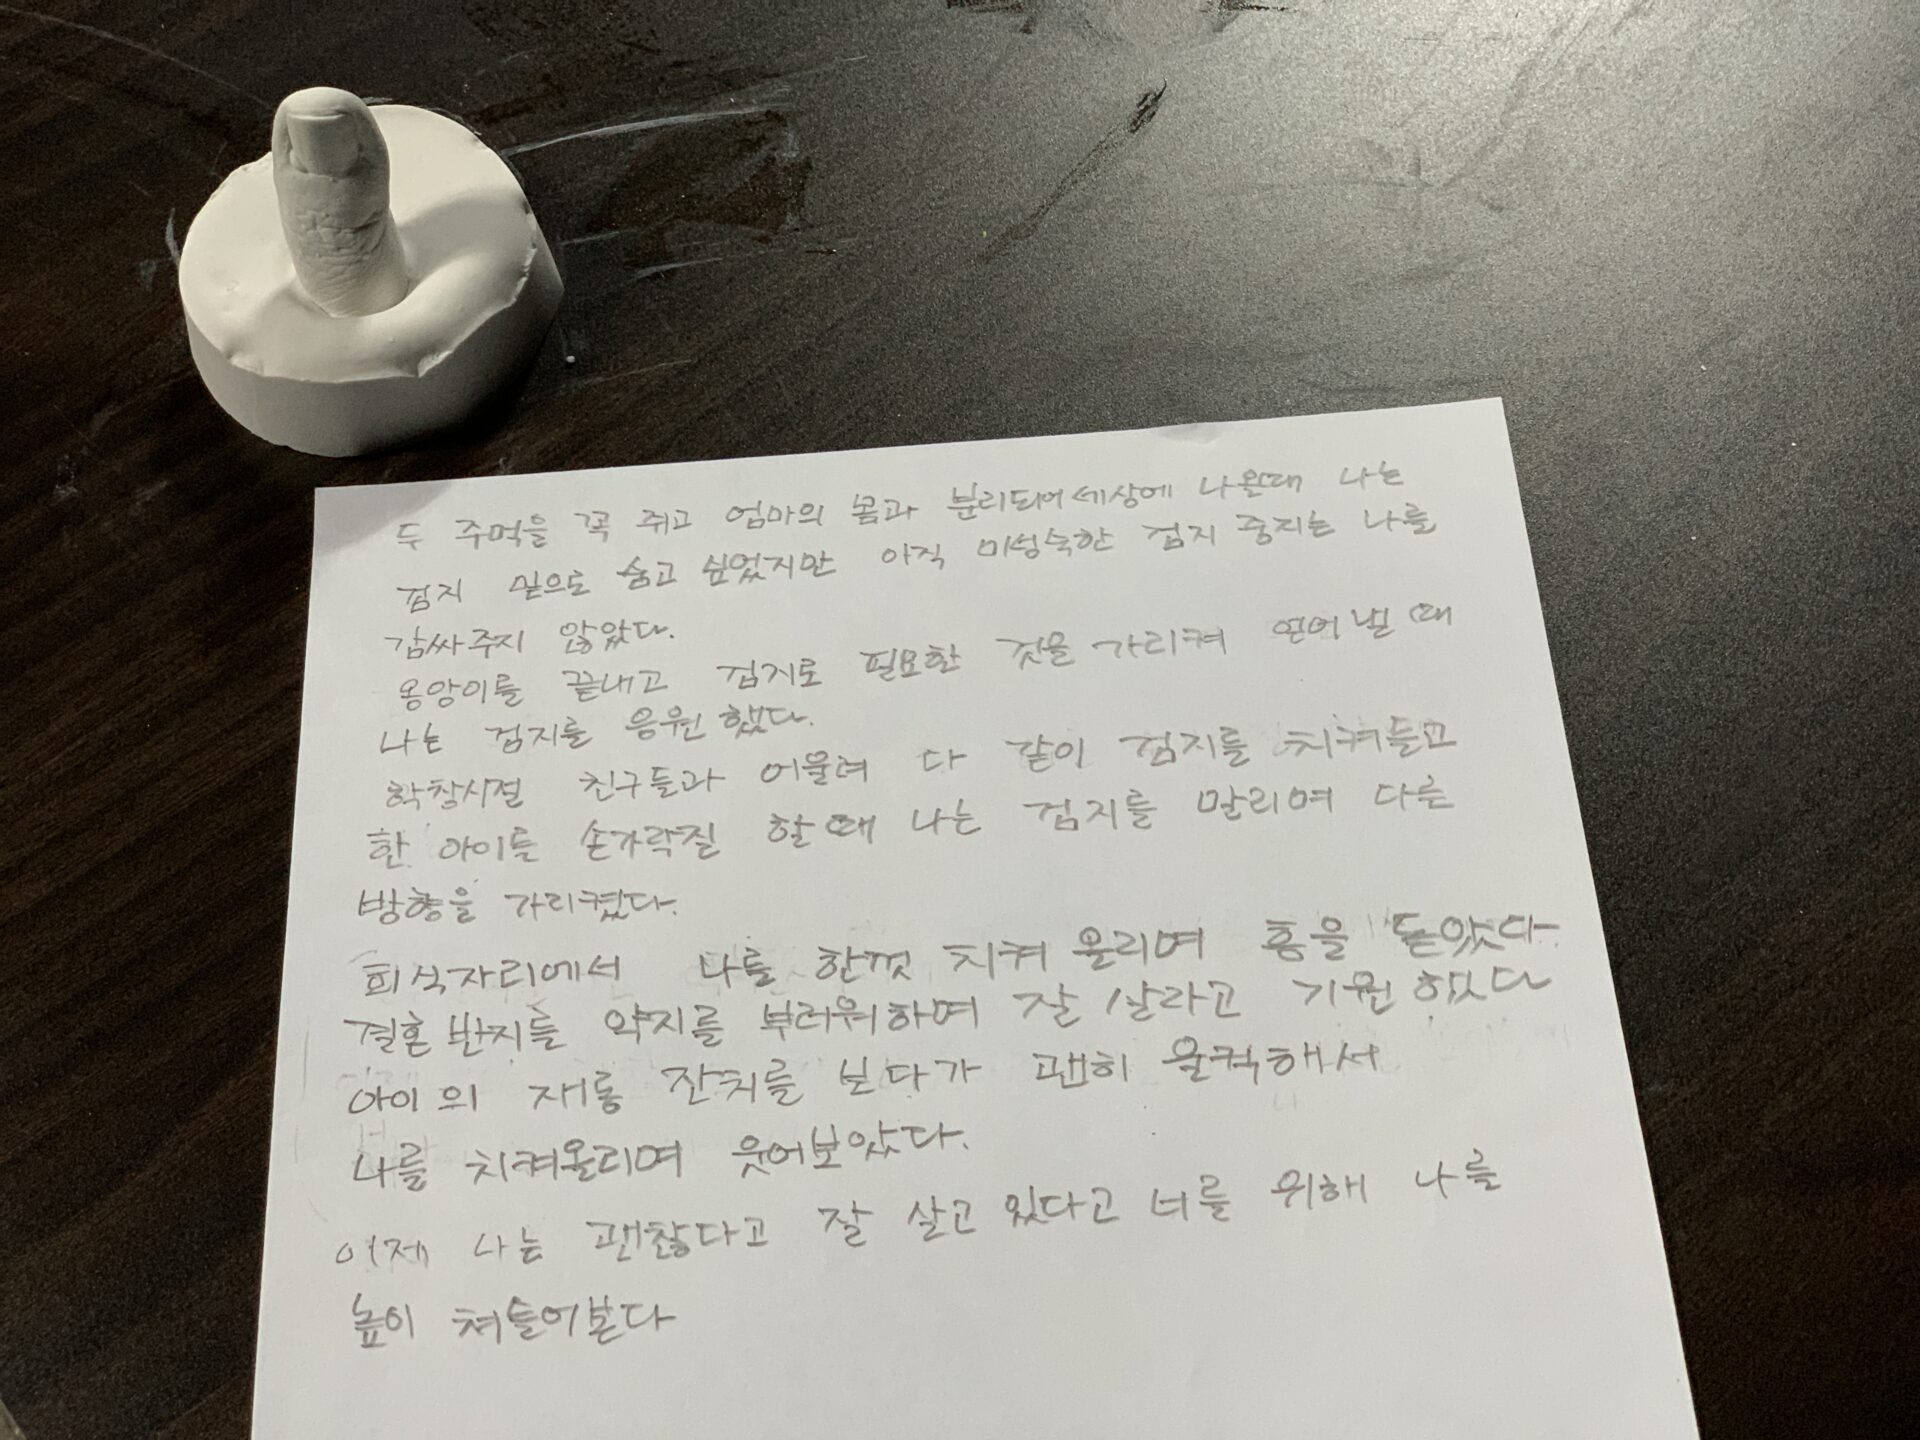 두 주먹을 꼭 쥐고 엄마의 몸과 분리되어 세상에 나올때 나는
검지 밑으로 숨고 싶었지만 아직 미성숙한 검지 중지는 나를
감싸주지 않았다.
옹앙이를 끝내고 검지로 필요한 것을 가리켜 얻어낼 때
나는 검지를 응원했다.
학창시절 친구들과 어울려 다 같이 검지를 치켜들고
한 아이를 손가락질 할때 나는 검지를 말리며 다른
방향을 가리켰다.
회식자리에서 나를 한껏 치켜 올리며 흥을 돋았다
결혼반지를 약지를 부러워하며 잘 살라고 기원했다
아이의 재롱 잔치를 보다가 괜히 울컥해서
나를 치켜올리며 웃어보았다.
이제 나는 괜찮다고 잘 살고 있다고 너를 위해 나를
높이 쳐들어본다